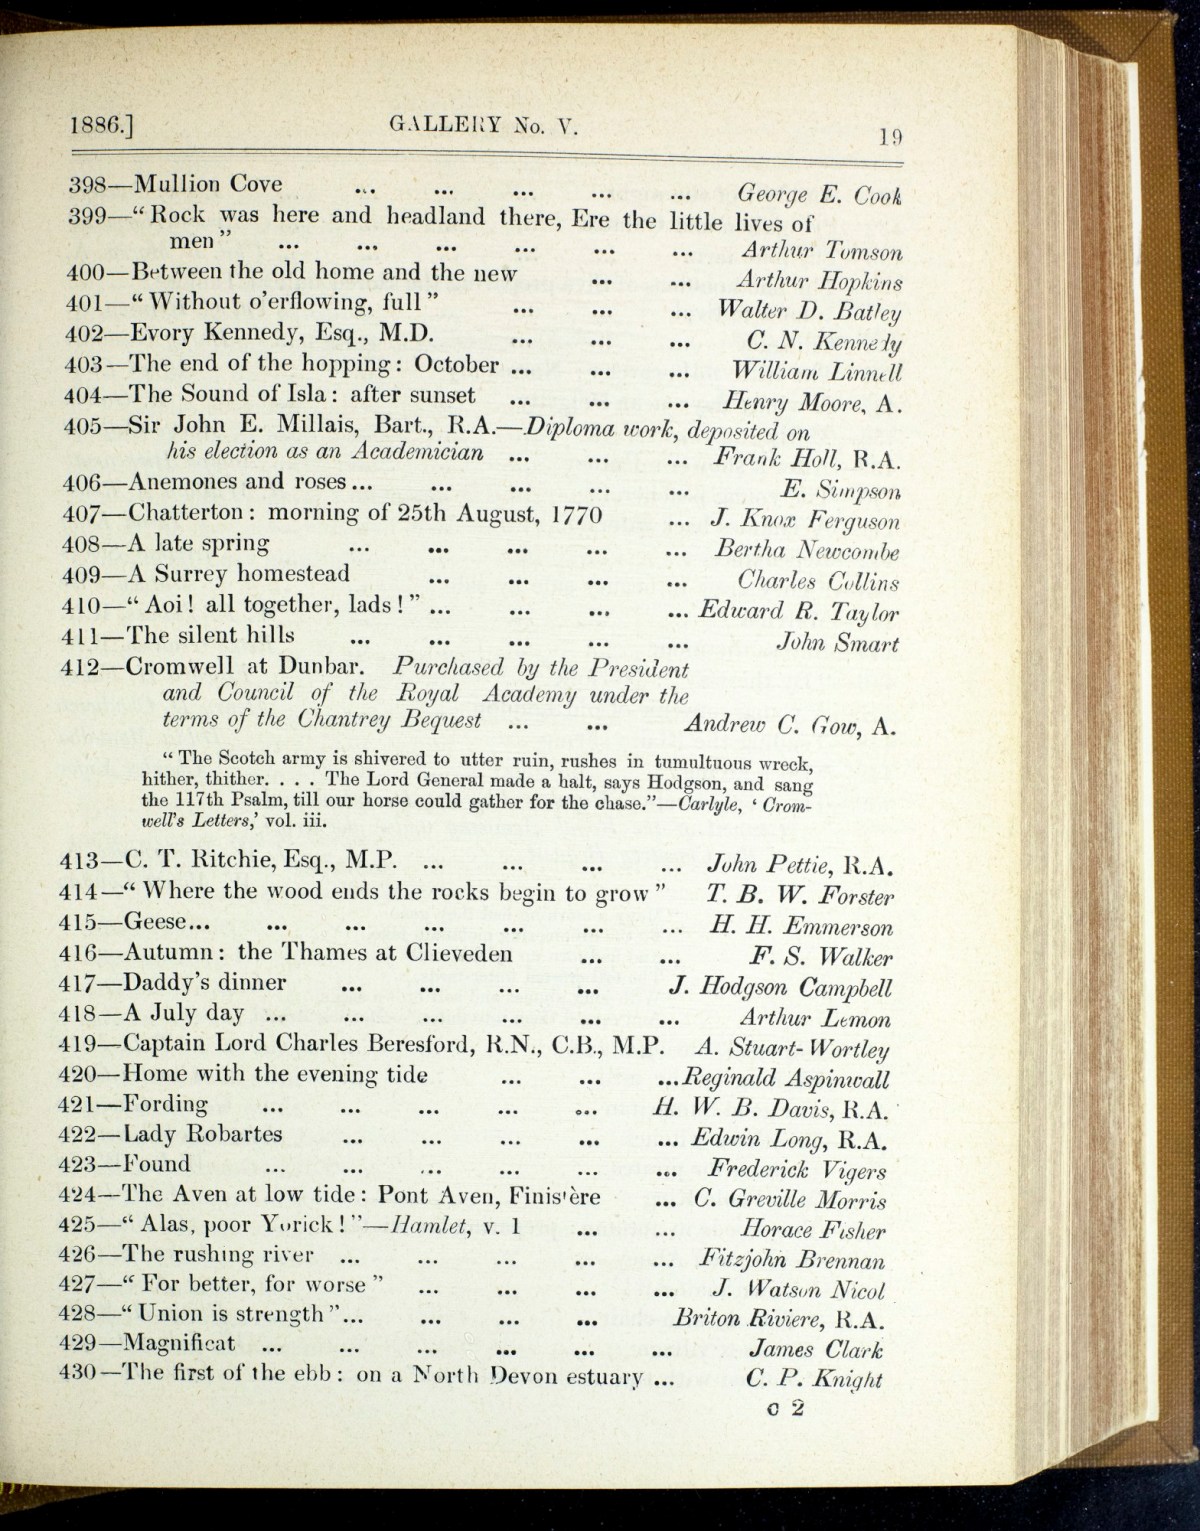 1886.] GALLERY No. V. 19
398—Mullion Cove ... ... ... ... ... George E. Cook
399—“Rock was here and headland there, Ere the little lives of
men” ... ... ... ... ... ... Arthur Tomson
400—Between the old home and the new ... ... Arthur Hopkins
401—“Without o'erflowing, full” ... ... ... Walter D. Batley
402—Evory Kennedy, Esq., M.D. ... ... ... C. N. Kennedy
403—The end of the hopping: October ... ... ... William Linnell
404—The Sound of Isla: after sunset ... ... ... Henry Moore, A.
405—Sir John E. Millais, Bart., R.A.—Diploma work, deposited on
his election as an Academician ... ... ... Frank Holl, R.A.
406—Anemones and roses... ... ... ... ... E. Simpson
407—Chatterton: morning of 25th August, 1770 ... J. Knox Ferguson
408—A late spring ... ... ... ... ... Bertha Newcombe
409—A Surrey homestead ... ... ... ... Charles Collins
410—“Aoi! all together, lads!” ... ... ... ... Edward R. Taylor
411—The silent hills ... ... ... ... ... John Smart
412—Cromwell at Dunbar. Purchased by the President
and Council of the Royal Academy under the
terms of the Chantrey Bequest ... ... Andrew C. Gow, A.
“The Scotch army is shivered to utter ruin, rushes in tumultuous wreck,
hither, thither. . . . The Lord General made a halt, says Hodgson, and sang
the 117th Psalm, till our horse could gather for the chase.”—Carlyle, ‘Crom-
well's Letters,’ vol. iii.
413—C. T. Ritchie, Esq., M.P. ... ... ... ... John Pettie, R.A.
414—“Where the wood ends the rocks begin to grow” T. B. W. Forster
415—Geese... ... ... ... ... ... ... H. H. Emmerson
416—Autumn: the Thames at Clieveden ... ... F. S. Walker
417—Daddy's dinner ... ... ... ... J. Hodgson Campbell
418—A July day ... ... ... ... ... ... Arthur Lemon
419—Captain Lord Charles Beresford, R.N., C.B., M.P. A. Stuart-Wortley
420—Home with the evening tide ... ... ... Reginald Aspinwall
421—Fording ... ... ... ... ... H. W. B. Davis, R.A.
422—Lady Robartes ... ... ... ... ... Edwin Long, R.A.
423—Found ... ... ... ... ... ... Frederick Vigers
424—The Aven at low tide: Pont Aven, Finistère ... C. Greville Morris
425—“Alas, poor Yorick!”—Hamlet, v. 1 ... ... Horace Fisher
426—The rushing river ... ... ... ... ... Fitzjohn Brennan
427—“For better, for worse” ... ... ... ... J. Watson Nicol
428—“Union is strength”... ... ... ... Briton Riviere, R.A.
429—Magnificat ... ... ... ... ... ... James Clark
430—The first of the ebb: on a North Devon estuary ... C. P. Knight
C 2